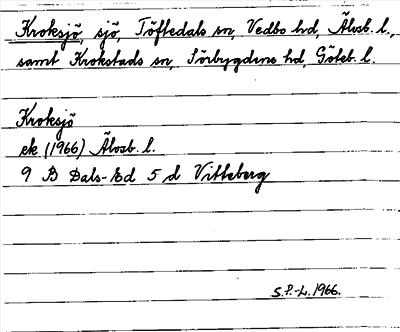 Kroksjö, sjö, Töftedals sn, Vedbo hd, Älvsb. l.,
samt Krokstads sn, Sörbygdens hd, Göteb. l.
Kroksjö
ek (1966) Älvsb. l.
9 B Dals-Ed 5 d Vitteberg
S.P.-L. 1966.